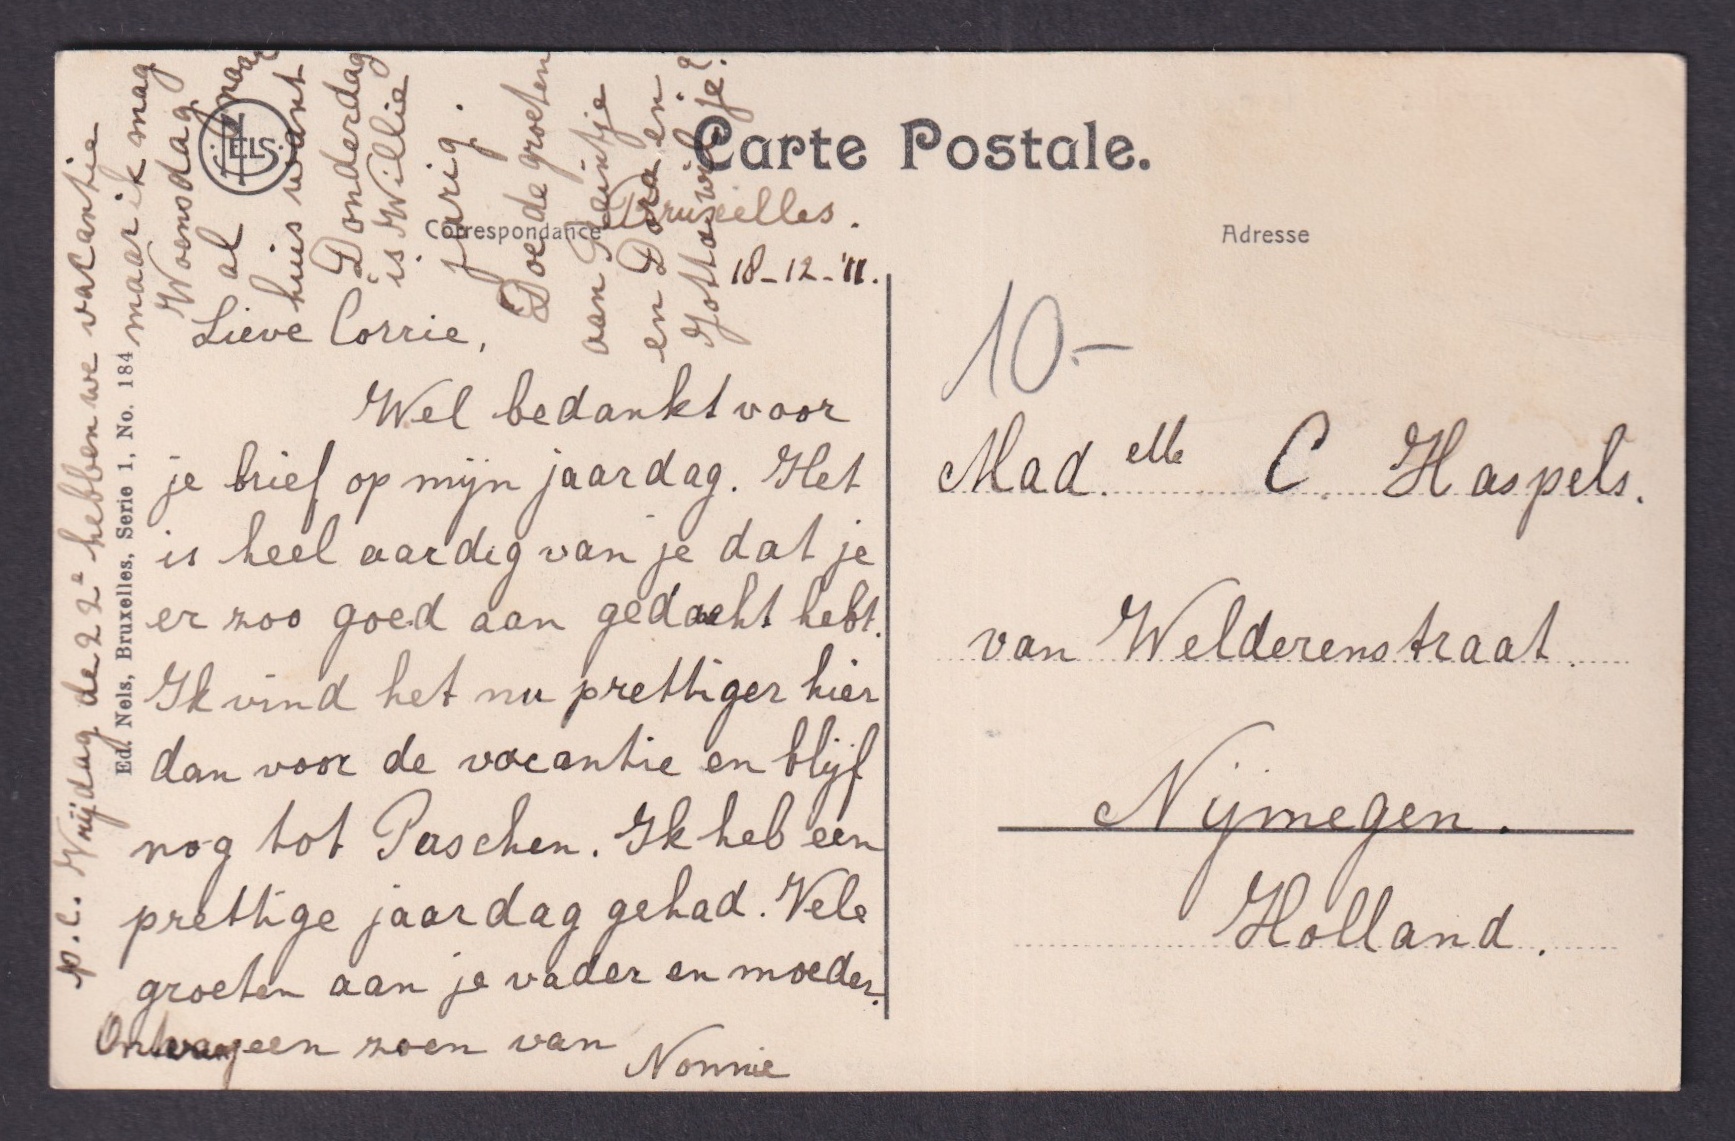 Carte Postale.
Correspondance
Adresse
NELS
Ed. Nels, Bruxelles, Serie 1, No. 184
Bruxelles.
18-12-'11.
Lieve Corrie,
Wel bedankt voor
je brief op mijn jaardag. Het
is heel aardig van je dat je
er zoo goed aan gedacht hebt.
Ik vind het nu prettiger hier
dan voor de vacantie en blijf
nog tot Paschen. Ik heb een
prettige jaardag gehad. Vele
groeten aan je vader en moeder.
Ontvang een zoen van
Nonnie
p.s. Vrijdag de 22e hebben we vacantie
maar ik mag
Woensdag
al naar
huis want
Donderdag
is Willie
jarig.
Doe de groeten
aan Leintje
en Dora en
Jotta, wil je?
10-
Mad.elle C. Haspels.
van Welderenstraat.
Nijmegen.
Holland.